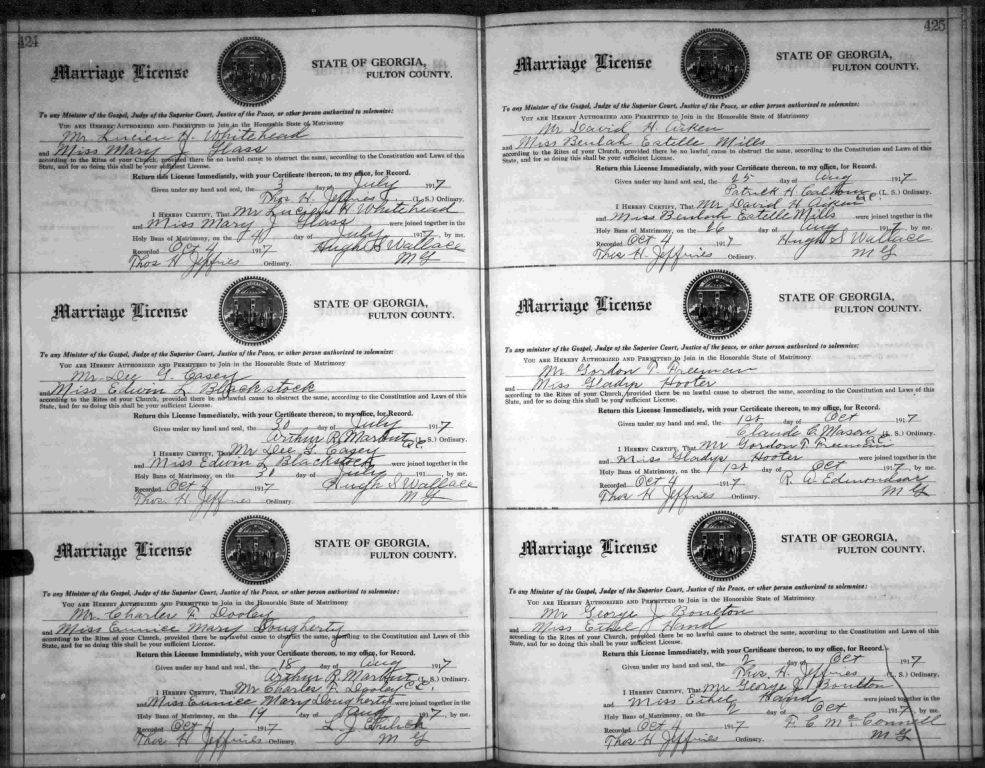 424
Marriage License
STATE OF GEORGIA,
FULTON COUNTY.
To any Minister of the Gospel, Judge of the Superior Court, Justice of the Peace, or other person authorized to solemnize:
YOU ARE HEREBY AUTHORIZED AND PERMITTED to Join in the Honorable State of Matrimony
Mr. Lucien H. Whitehead
and Miss Mary J. Glass
according to the Rites of your Church, provided there be no lawful cause to obstruct the same, according to the Constitution and Laws of this
State, and for so doing this shall be your sufficient License.
Return this License Immediately, with your Certificate thereon, to my office, for Record.
Given under my hand and seal, the 3 day of July 1917
Thos H. Jeffries (L. S.) Ordinary.
I HEREBY CERTIFY, That Mr Lucien H Whitehead
and Miss Mary J. Glass were joined together in the
Holy Bans of Matrimony, on the 4 day of July 1917, by me.
Recorded Oct 4 1917 Hugh S Wallace
Thos H Jeffries Ordinary. M G
Marriage License
STATE OF GEORGIA,
FULTON COUNTY.
To any Minister of the Gospel, Judge of the Superior Court, Justice of the Peace, or other person authorized to solemnize:
YOU ARE HEREBY AUTHORIZED AND PERMITTED to Join in the Honorable State of Matrimony
Mr. Dee G. Casey
and Miss Edwin L Blackstock
according to the Rites of your Church, provided there be no lawful cause to obstruct the same, according to the Constitution and Laws of this
State, and for so doing this shall be your sufficient License.
Return this License Immediately, with your Certificate thereon, to my office, for Record.
Given under my hand and seal, the 30 day of July 1917
Arthur R. Marbut C.C. (L. S.) Ordinary.
I HEREBY CERTIFY, That Mr Dee G. Casey
and Miss Edwin L Blackstock were joined together in the
Holy Bans of Matrimony, on the 30 day of July 1917, by me.
Recorded Oct 4 1917 Hugh S Wallace
Thos H Jeffries Ordinary. M G
Marriage License
STATE OF GEORGIA,
FULTON COUNTY.
To any Minister of the Gospel, Judge of the Superior Court, Justice of the Peace, or other person authorized to solemnize:
YOU ARE HEREBY AUTHORIZED AND PERMITTED to Join in the Honorable State of Matrimony
Mr. Charles F. Dooley
and Miss Eunice Mary Dougherty
according to the Rites of your Church, provided there be no lawful cause to obstruct the same, according to the Constitution and Laws of this
State, and for so doing this shall be your sufficient License.
Return this License Immediately, with your Certificate thereon, to my office, for Record.
Given under my hand and seal, the 18 day of Aug 1917
Arthur R. Marbut C.C. (L. S.) Ordinary.
I HEREBY CERTIFY, That Mr Charles F. Dooley
and Miss Eunice Mary Dougherty were joined together in the
Holy Bans of Matrimony, on the 19 day of Aug 1917, by me.
Recorded Oct 4 1917 L. J.
Thos H Jeffries Ordinary. M G
425
Marriage License
STATE OF GEORGIA,
FULTON COUNTY.
To any Minister of the Gospel, Judge of the Superior Court, Justice of the Peace, or other person authorized to solemnize:
YOU ARE HEREBY AUTHORIZED AND PERMITTED to Join in the Honorable State of Matrimony
Mr David H. Aiken
and Miss Beulah Estelle Mills
according to the Rites of your Church, provided there be no lawful cause to obstruct the same, according to the Constitution and Laws of this
State, and for so doing this shall be your sufficient License.
Return this License Immediately, with your Certificate thereon, to my office, for Record.
Given under my hand and seal, the 25 day of Aug 1917
Patrick H. Calhoun C.C. (L. S.) Ordinary.
I HEREBY CERTIFY, That Mr David H. Aiken
and Miss Beulah Estelle Mills were joined together in the
Holy Bans of Matrimony, on the 26 day of Aug 1917, by me.
Recorded Oct 4 1917 Hugh S Wallace
Thos H Jeffries Ordinary. M G
Marriage License
STATE OF GEORGIA,
FULTON COUNTY.
To any minister of the Gospel, Judge of the Superior Court, Justice of the peace, or other person authorized to solemnize:
YOU ARE HEREBY AUTHORIZED AND PERMITTED to Join in the Honorable State of Matrimony
Mr Gordon T. Freeman
and Miss Gladys Hooter
according to the Rites of your Church, provided there be no lawful cause to obstruct the same, according to the Constitution and Laws of this
State, and for so doing this shall be your sufficient License.
Return this License Immediately, with your Certificate thereon, to my office, for Record.
Given under my hand and seal, the 1st day of Oct 1917
Claude C. Mason C.C. (L. S.) Ordinary.
I HEREBY CERTIFY, That Mr Gordon T. Freeman
and Miss Gladys Hooter were joined together in the
Holy Bans of Matrimony, on the 1st day of Oct 1917, by me.
Recorded Oct 4 1917 R. A. Edmondson
Thos H Jeffries Ordinary. M G
Marriage License
STATE OF GEORGIA,
FULTON COUNTY.
To any Minister of the Gospel, Judge of the Superior Court, Justice of the Peace, or other person authorized to solemnize:
YOU ARE HEREBY AUTHORIZED AND PERMITTED to Join in the Honorable State of Matrimony
Mr George J. Boulton
and Miss Ethel Hand
according to the Rites of your Church, provided there be no lawful cause to obstruct the same, according to the Constitution and Laws of this
State, and for so doing this shall be your sufficient License.
Return this License Immediately, with your Certificate thereon, to my office, for Record.
Given under my hand and seal, the 2 day of Oct 1917
Thos. H. Jeffries (L. S.) Ordinary.
I HEREBY CERTIFY, That Mr George J. Boulton
and Miss Ethel Hand were joined together in the
Holy Bans of Matrimony, on the 2 day of Oct 1917, by me.
Recorded Oct 4 1917 F. C. McConnell
Thos H Jeffries Ordinary. M G